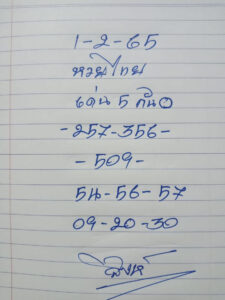 1-2-65
หวยไทย
เด่น 5 กับ 0
-257-356-
-509-
54-56-57
09-20-30